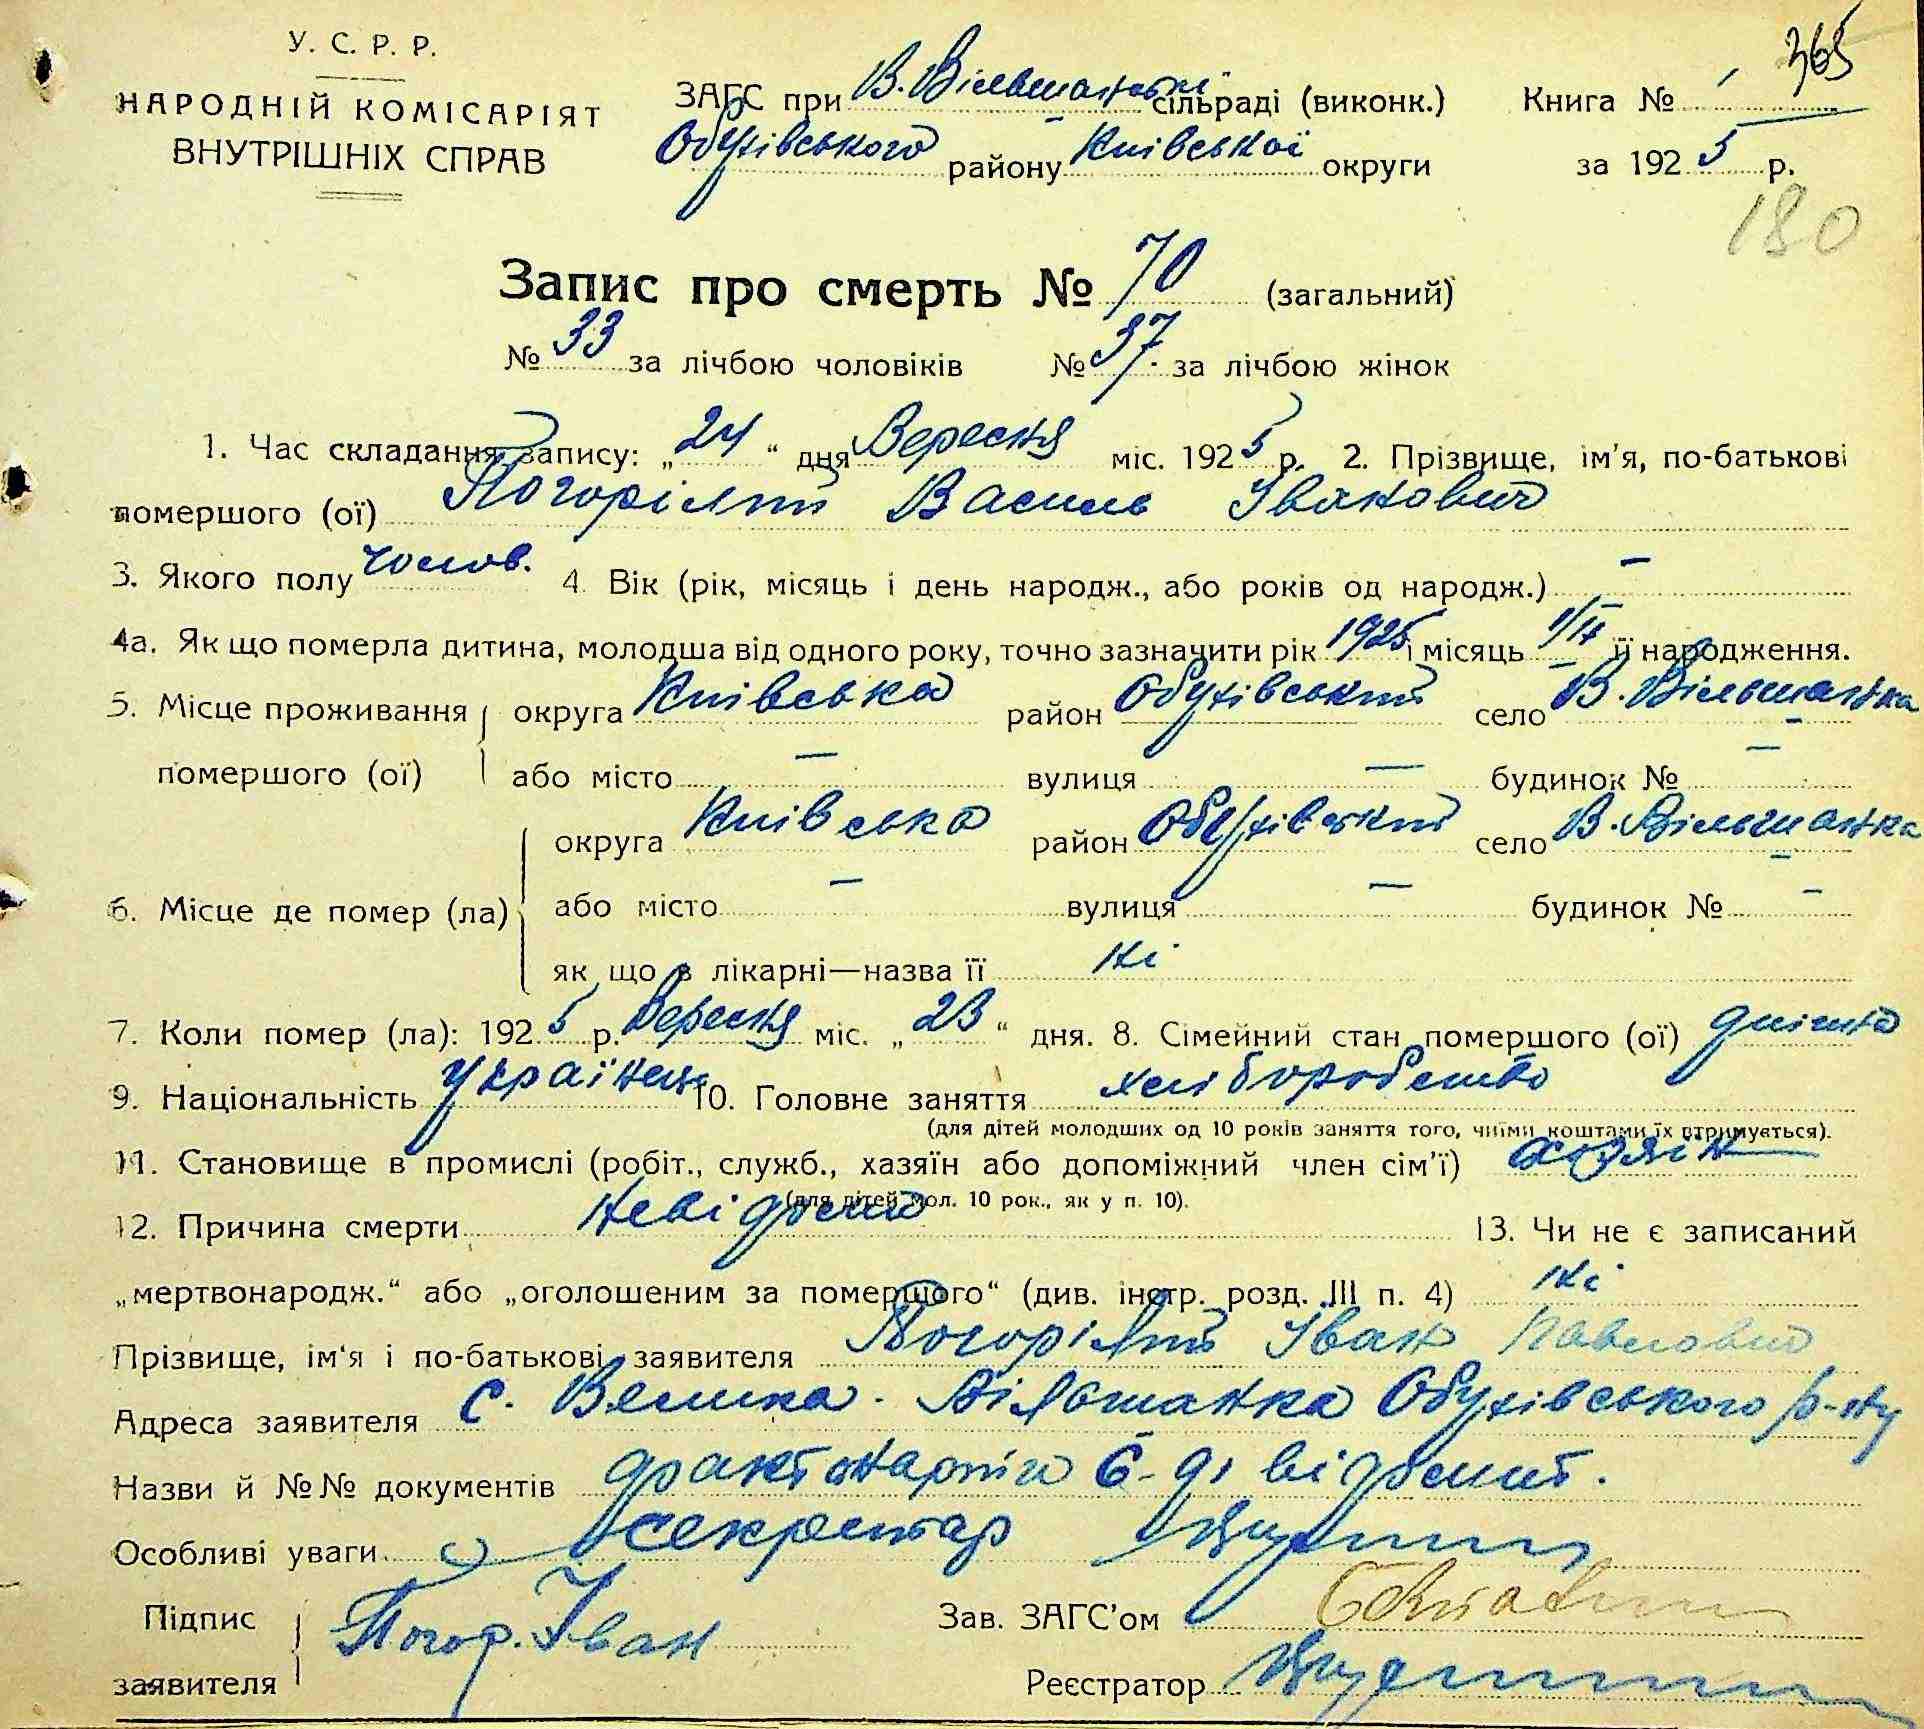 365
У. С. Р. Р.
НАРОДНІЙ КОМІСАРІЯТ
ВНУТРІШНІХ СПРАВ
ЗАГС при В. Вільшанській сільраді (виконк.) Книга №
Обухівського району Київської округи за 1925 р.
180
Запис про смерть № 70 (загальний)
№ 33 за лічбою чоловіків № 37 за лічбою жінок
1. Час складання запису: „24“ дня Вересня міс. 1925 р. 2. Прізвище, ім'я, по-батькові
помершого (ої) Погорілий Василь Іванович
3. Якого полу чолов. 4. Вік (рік, місяць і день народж., або років од народж.) —
4а. Як що померла дитина, молодша від одного року, точно зазначити рік 1925 і місяць її народження.
5. Місце проживання округа Київська район Обухівський село В. Вільшанка
помершого (ої) або місто — вулиця — будинок № —
округа Київська район Обухівський село В. Вільшанка
6. Місце де помер (ла) або місто — вулиця — будинок № —
як що в лікарні—назва її ні
7. Коли помер (ла): 1925 р. Вересня міс. „23“ дня. 8. Сімейний стан помершого (ої) дитина
9. Національність Українець 10. Головне заняття хліборобство
(для дітей молодших од 10 років заняття того, чиїми коштами їх втримується).
11. Становище в промислі (робіт., служб., хазяїн або допоміжний член сім'ї) хозяїн
(для дітей мол. 10 рок., як у п. 10).
12. Причина смерти невідома 13. Чи не є записаний
„мертвонародж.“ або „оголошеним за померщого“ (див. інстр. розд. III п. 4) ні
Прізвище, ім'я і по-батькові заявителя Погорілий Іван Павлович
Адреса заявителя с. Велика Вільшанка Обухівського р-ну
Назви й №№ документів
Особливі уваги секретар
Підпис Погор. Іван Зав. ЗАГС'ом
заявителя Реєстратор